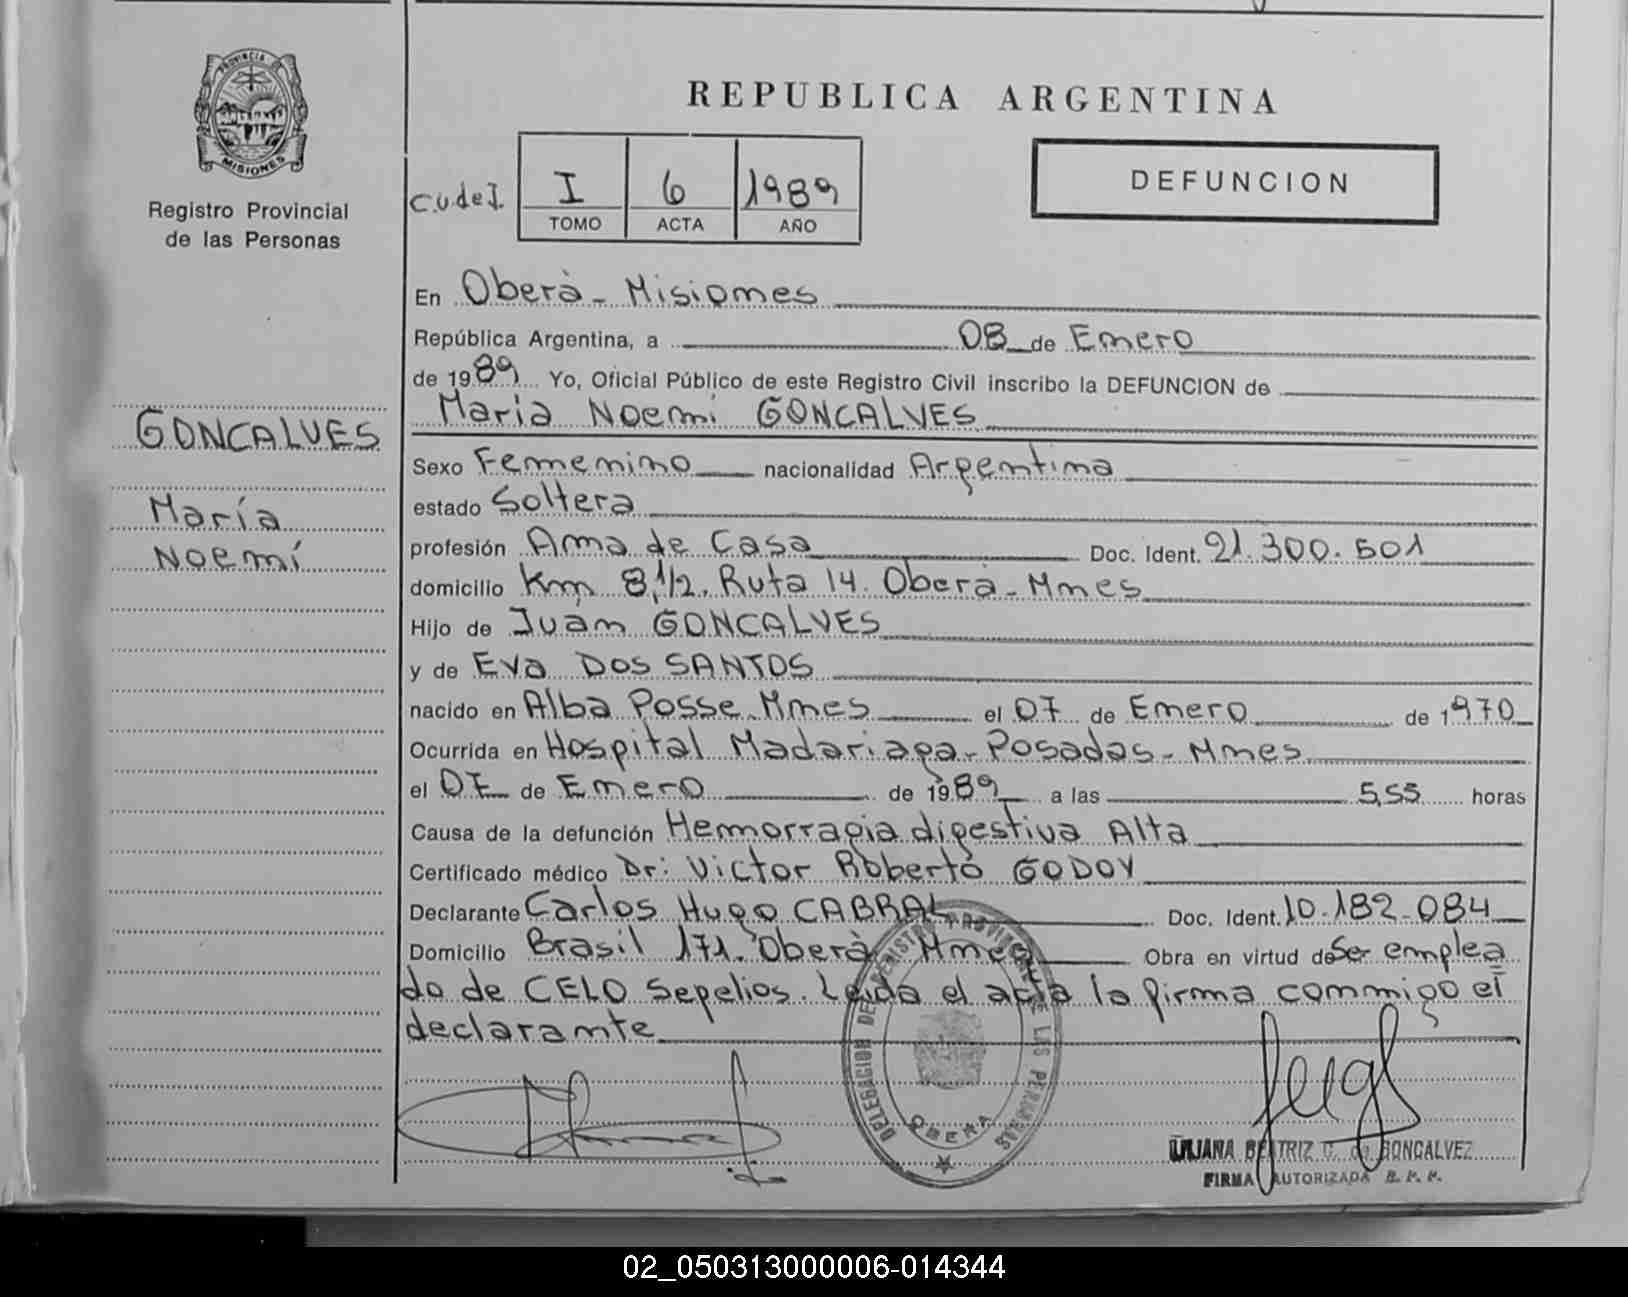 PROVINCIA DE
MISIONES
Registro Provincial
de las Personas
GONCALVES
María
Noemí
REPUBLICA ARGENTINA
C.U.de I. I 6 1989
TOMO ACTA AÑO
DEFUNCION
En Oberà - Misiones
República Argentina, a 08 de Enero
de 1989 Yo, Oficial Público de este Registro Civil inscribo la DEFUNCION de
Maria Noemi GONCALVES
Sexo Femenino nacionalidad Argentina
estado Soltera
profesión Ama de Casa Doc. Ident. 21.300.501
domicilio Km 8,1/2. Ruta 14. Oberà - Mnes
Hijo de Juàn GONCALVES
y de Eva DOS SANTOS
nacido en Alba Posse. Mnes el 07 de Enero de 1970
Ocurrida en Hospital Madariaga - Posadas - Mnes
el 07 de Enero de 1989 a las 5,55 horas
Causa de la defunción Hemorragia digestiva Alta
Certificado médico Dr: Victor Roberto GODOY
Declarante Carlos Hugo CABRAL Doc. Ident. 10.182.084
Domicilio Brasil 171. Oberà Mnes Obra en virtud de Ser emplea
do de CELO Sepelios. Leida el acta la firma conmigo el
declarante
DELEGACION DEL REGISTRO PROVINCIAL DE LAS PERSONAS
OBERA
LILIANA BEATRIZ C. de GONCALVEZ
FIRMA AUTORIZADA R. P. P.
02_050313000006-014344